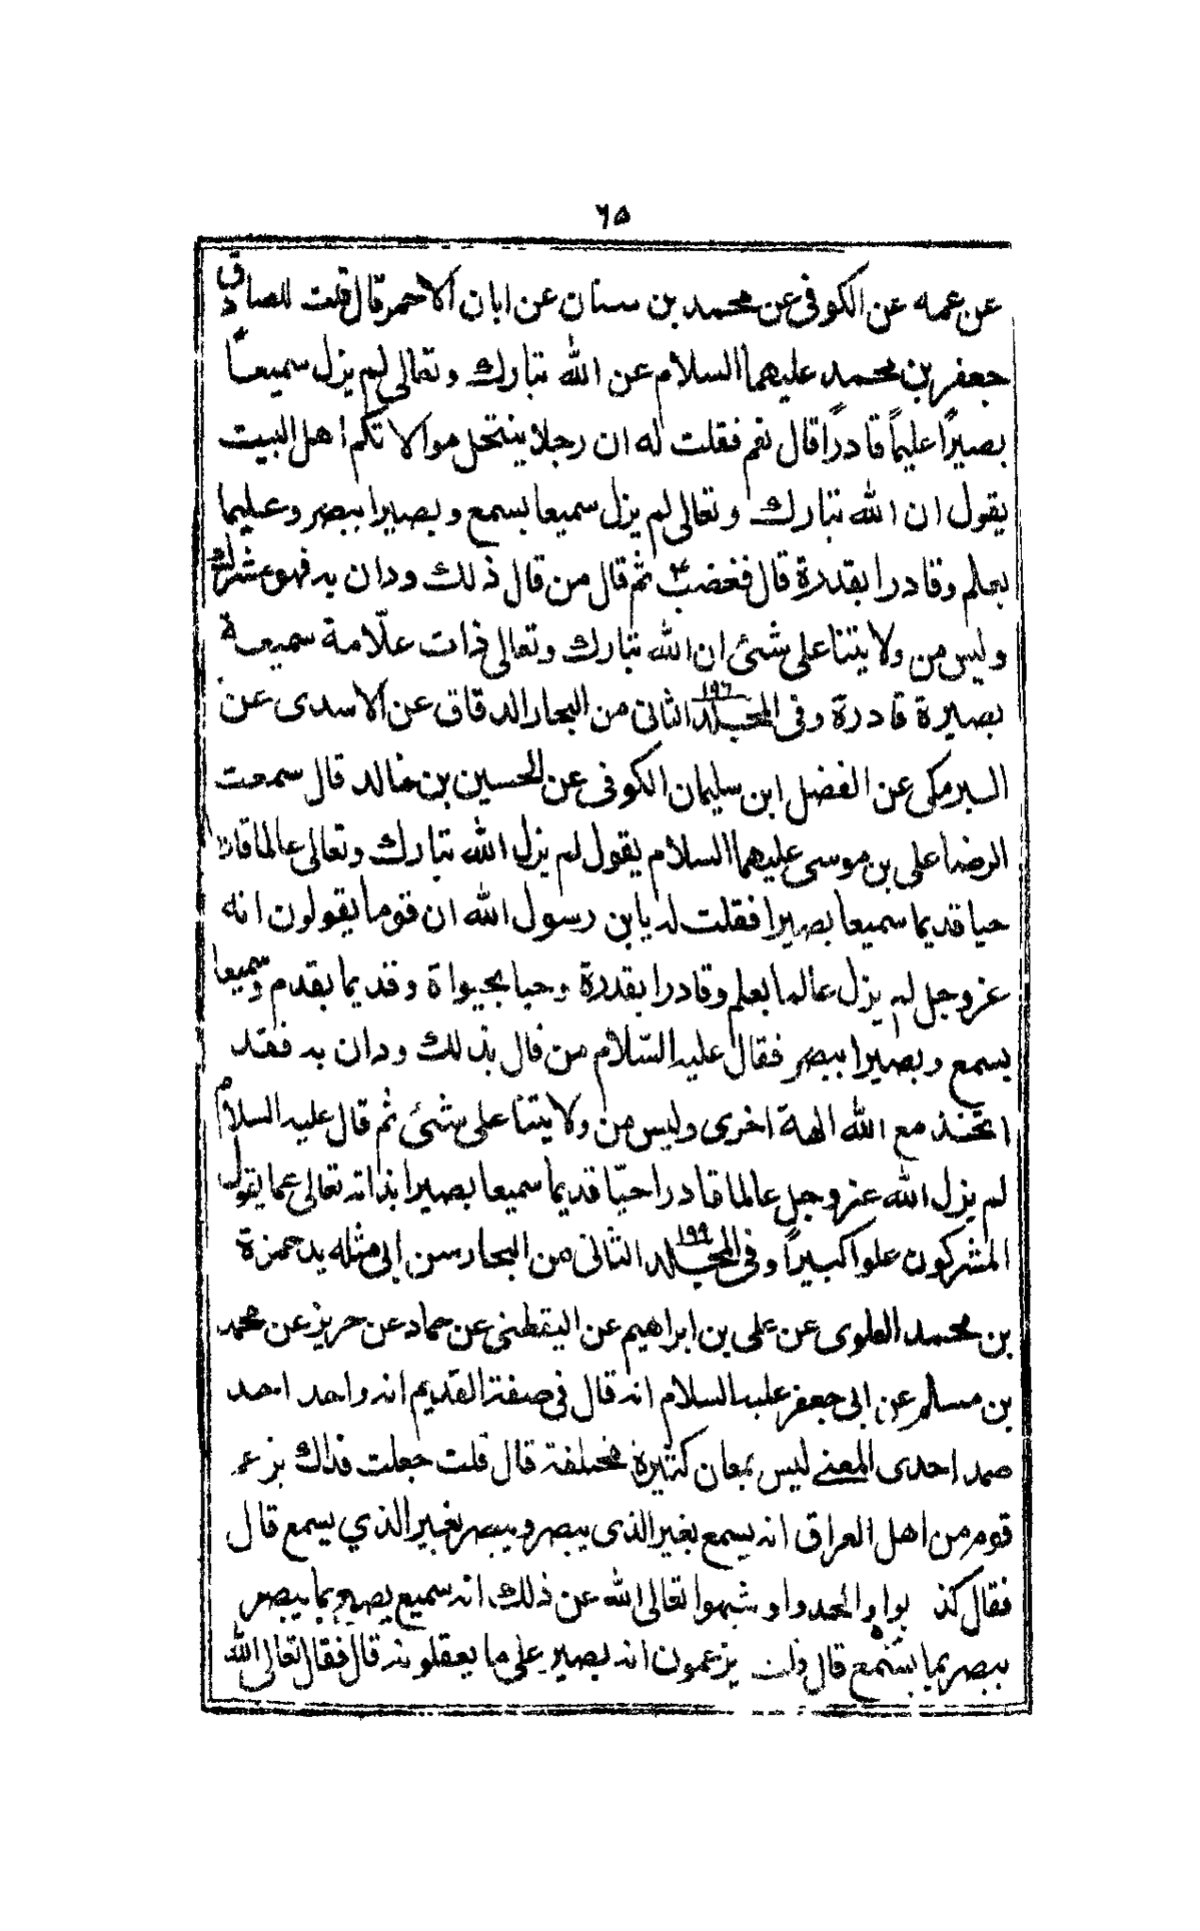 ٦٥
عن عمه عن الكوفى عن محمد بن سنان عن ابان الاحمر قال قلت للصادق
جعفر بن محمد عليهما السلام عن الله تبارك وتعالى لم يزل سميعاً
بصيرًا عليماً قادرًا قال نعم فقلت له ان رجلا ينتحل موالاتكم اهل البيت
يقول ان الله تبارك وتعالى لم يزل سميعا بسمع وبصيرا ببصر وعليما
بعلم وقادرا بقدرة قال فغضب ثم قال من قال ذلك ودان به فهو مشرك
وليس من ولايتنا على شئ ان الله تبارك وتعالى ذات علّامة سميعة
بصيرة قادرة وفى المجلد ١٩٦ الثانى من البحار الدقاق عن الاسدى عن
البرمكى عن الفضل ابن سليمان الكوفى عن الحسين بن خالد قال سمعت
الرضا على بن موسى عليهما السلام يقول لم يزل الله تبارك وتعالى عالما قادرا
حيا قديما سميعا بصيرا فقلت له يابن رسول الله ان قوما يقولون انه
عز وجل لم يزل عالما بعلم وقادرا بقدرة وحيا بحيواة وقديما بقدم وسميعا
بسمع وبصيرا ببصر فقال عليه السّلام من قال بذلك ودان به فقد
اتخذ مع الله الهة اخرى وليس من ولايتنا على شئ ثم قال عليه السلام
لم يزل الله عز وجل عالما قادرا حيّا قديما سميعا بصيرا بذاته تعالى عما يقول
المشركون علوا كبيرًا وفى المجلد ١٩٩ الثانى من البحار سن ابى مثله يد حمزة
بن محمد العلوى عن على بن ابراهيم عن اليقطنى عن حماد عن حريز عن محمد
بن مسلم عن ابى جعفر عليه السلام انه قال فى صفة القديم انه واحد احد
صمد احدى المعنى ليس بمعان كثيرة مختلفة قال قلت جعلت فداك يزعم
قوم من اهل العراق انه يسمع بغير الذى يبصر ويبصر بغير الذي يسمع قال
فقال كذبوا والحدوا وشبهوا تعالى الله عن ذلك انه سميع بصير يسمع بما يبصر
يبصر بما يسمع قال قلت يزعمون انه بصير على ما يعقلونه قال فقال تعالى الله